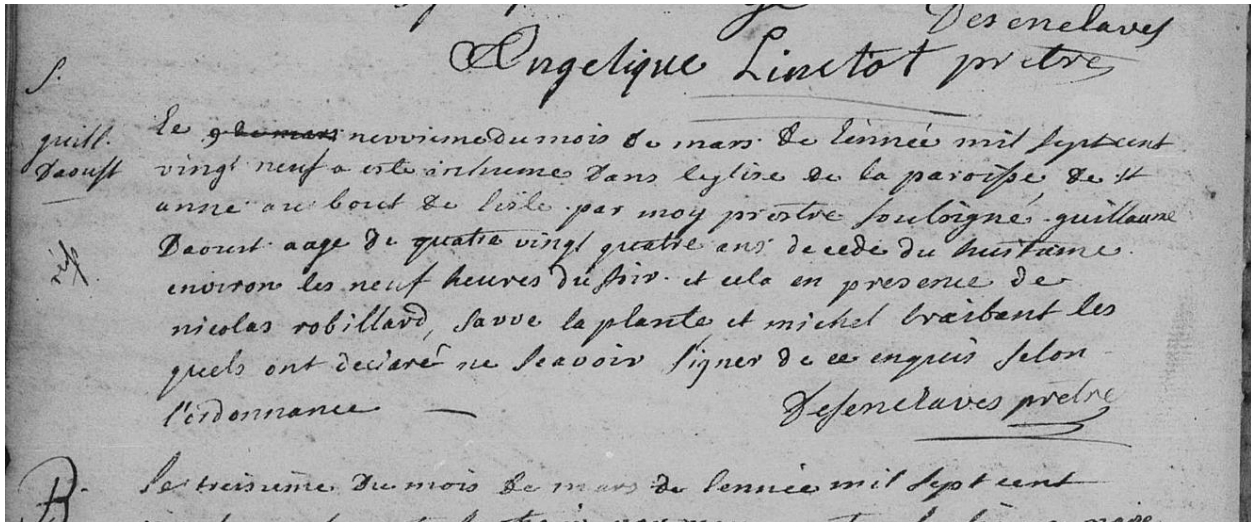 Desenclaves
Angelique Linctot prêtre
S.
guill.
Daoust
Le 9 de mars neuvieme du mois de mars de lennée mil sept cent
vingt neuf a este inhume Dans leglise de la paroisse de st
anne au bout de lisle par moy prestre soubsigné guillaume
Daoust aage de quatre vingt quatre ans decede du huitieme
environ les neuf heures du soir et cela en presence de
nicolas robillard, la plante et michel braibant les
quels ont declaré ne scavoir signer de ce enquis selon
l'ordonnance
Desenclaves prêtre
B.
le treisieme Du mois de mars de lennée mil sept cent